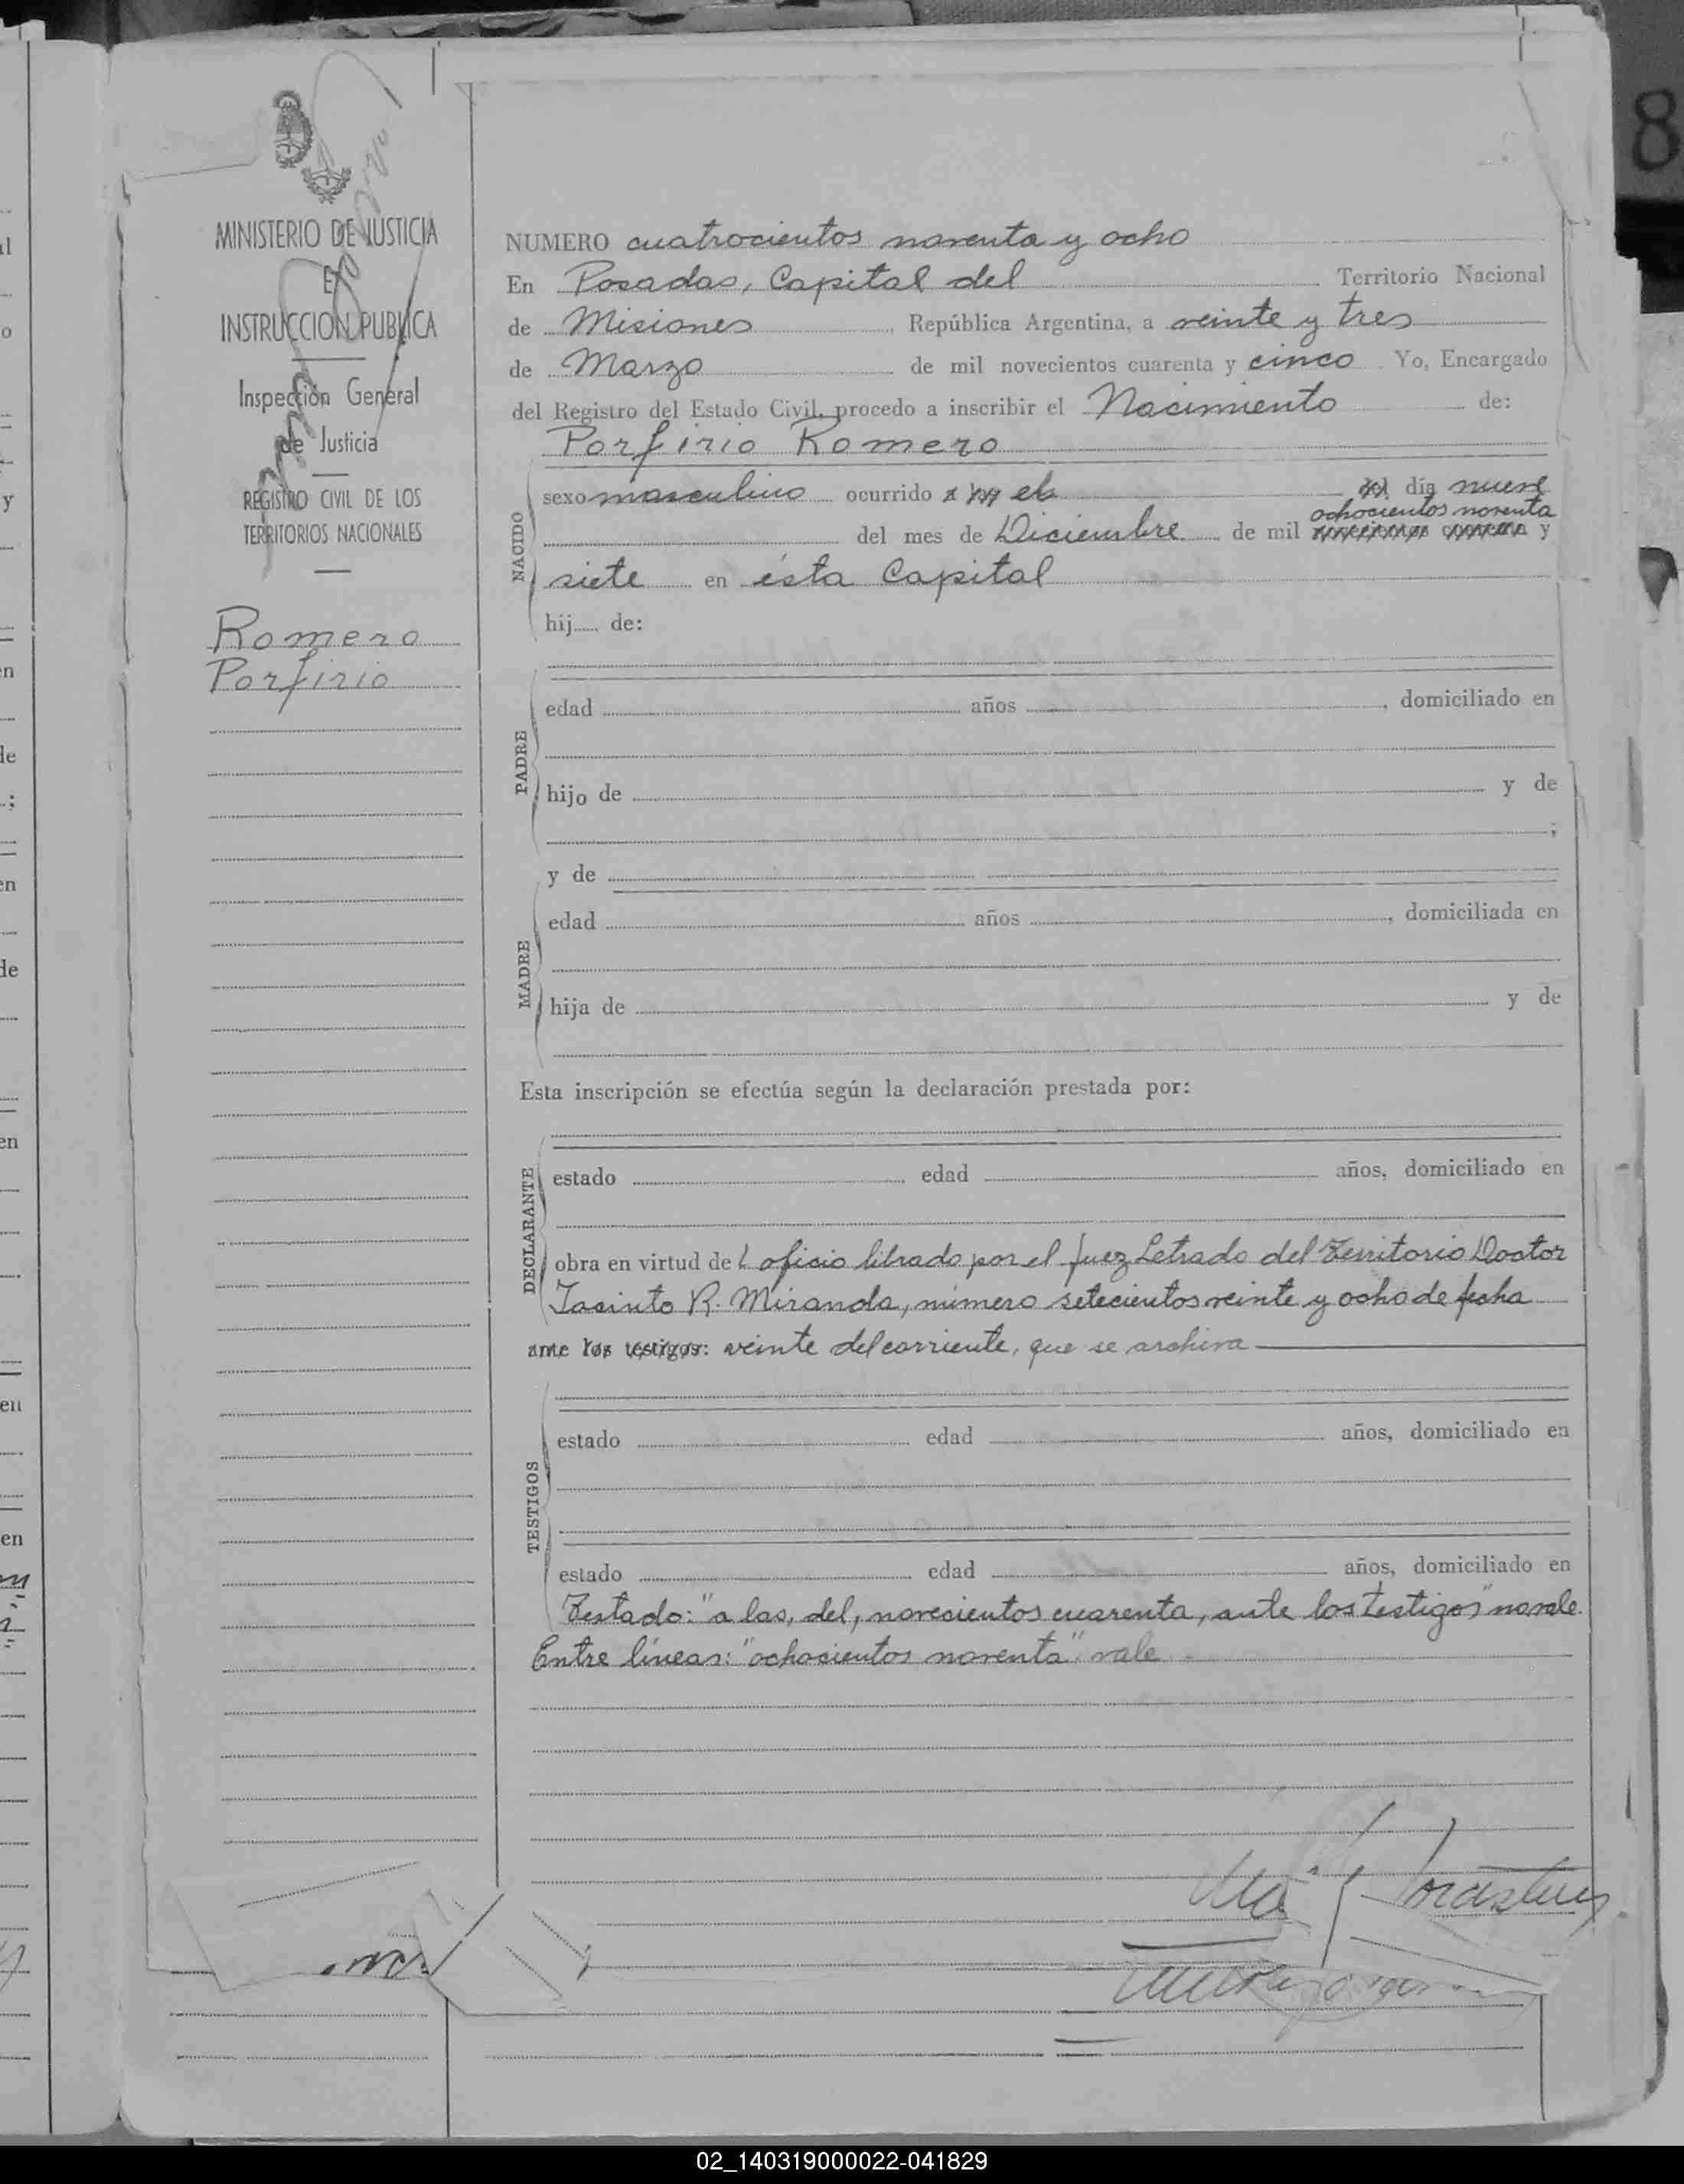 MINISTERIO DE JUSTICIA
E
INSTRUCCION PUBLICA
Inspección General
de Justicia
REGISTRO CIVIL DE LOS
TERRITORIOS NACIONALES
Romero
Porfirio
8
NUMERO cuatrocientos noventa y ocho
En Posadas, Capital del Territorio Nacional
de Misiones, República Argentina, a veinte y tres
de Marzo de mil novecientos cuarenta y cinco. Yo, Encargado
del Registro del Estado Civil, procedo a inscribir el Nacimiento de:
Porfirio Romero
NACIDO
sexo masculino ocurrido a las el del día nueve
ochocientos noventa
del mes de Diciembre de mil novecientos cuarenta y
siete en ésta Capital
hij de:
PADRE
edad años , domiciliado en
hijo de y de
;
y de
MADRE
edad años , domiciliada en
hija de y de
Esta inscripción se efectúa según la declaración prestada por:
DECLARANTE
estado edad años, domiciliado en
obra en virtud de l oficio librado por el Juez Letrado del Territorio Doctor
Jacinto R. Miranda, número setecientos veinte y ocho de fecha
ante los testigos: veinte del corriente, que se archiva
TESTIGOS
estado edad años, domiciliado en
estado edad años, domiciliado en
Testado: "a las, del, novecientos cuarenta, ante los testigos" no vale.
Entre líneas: "ochocientos noventa" vale
02_140319000022-041829